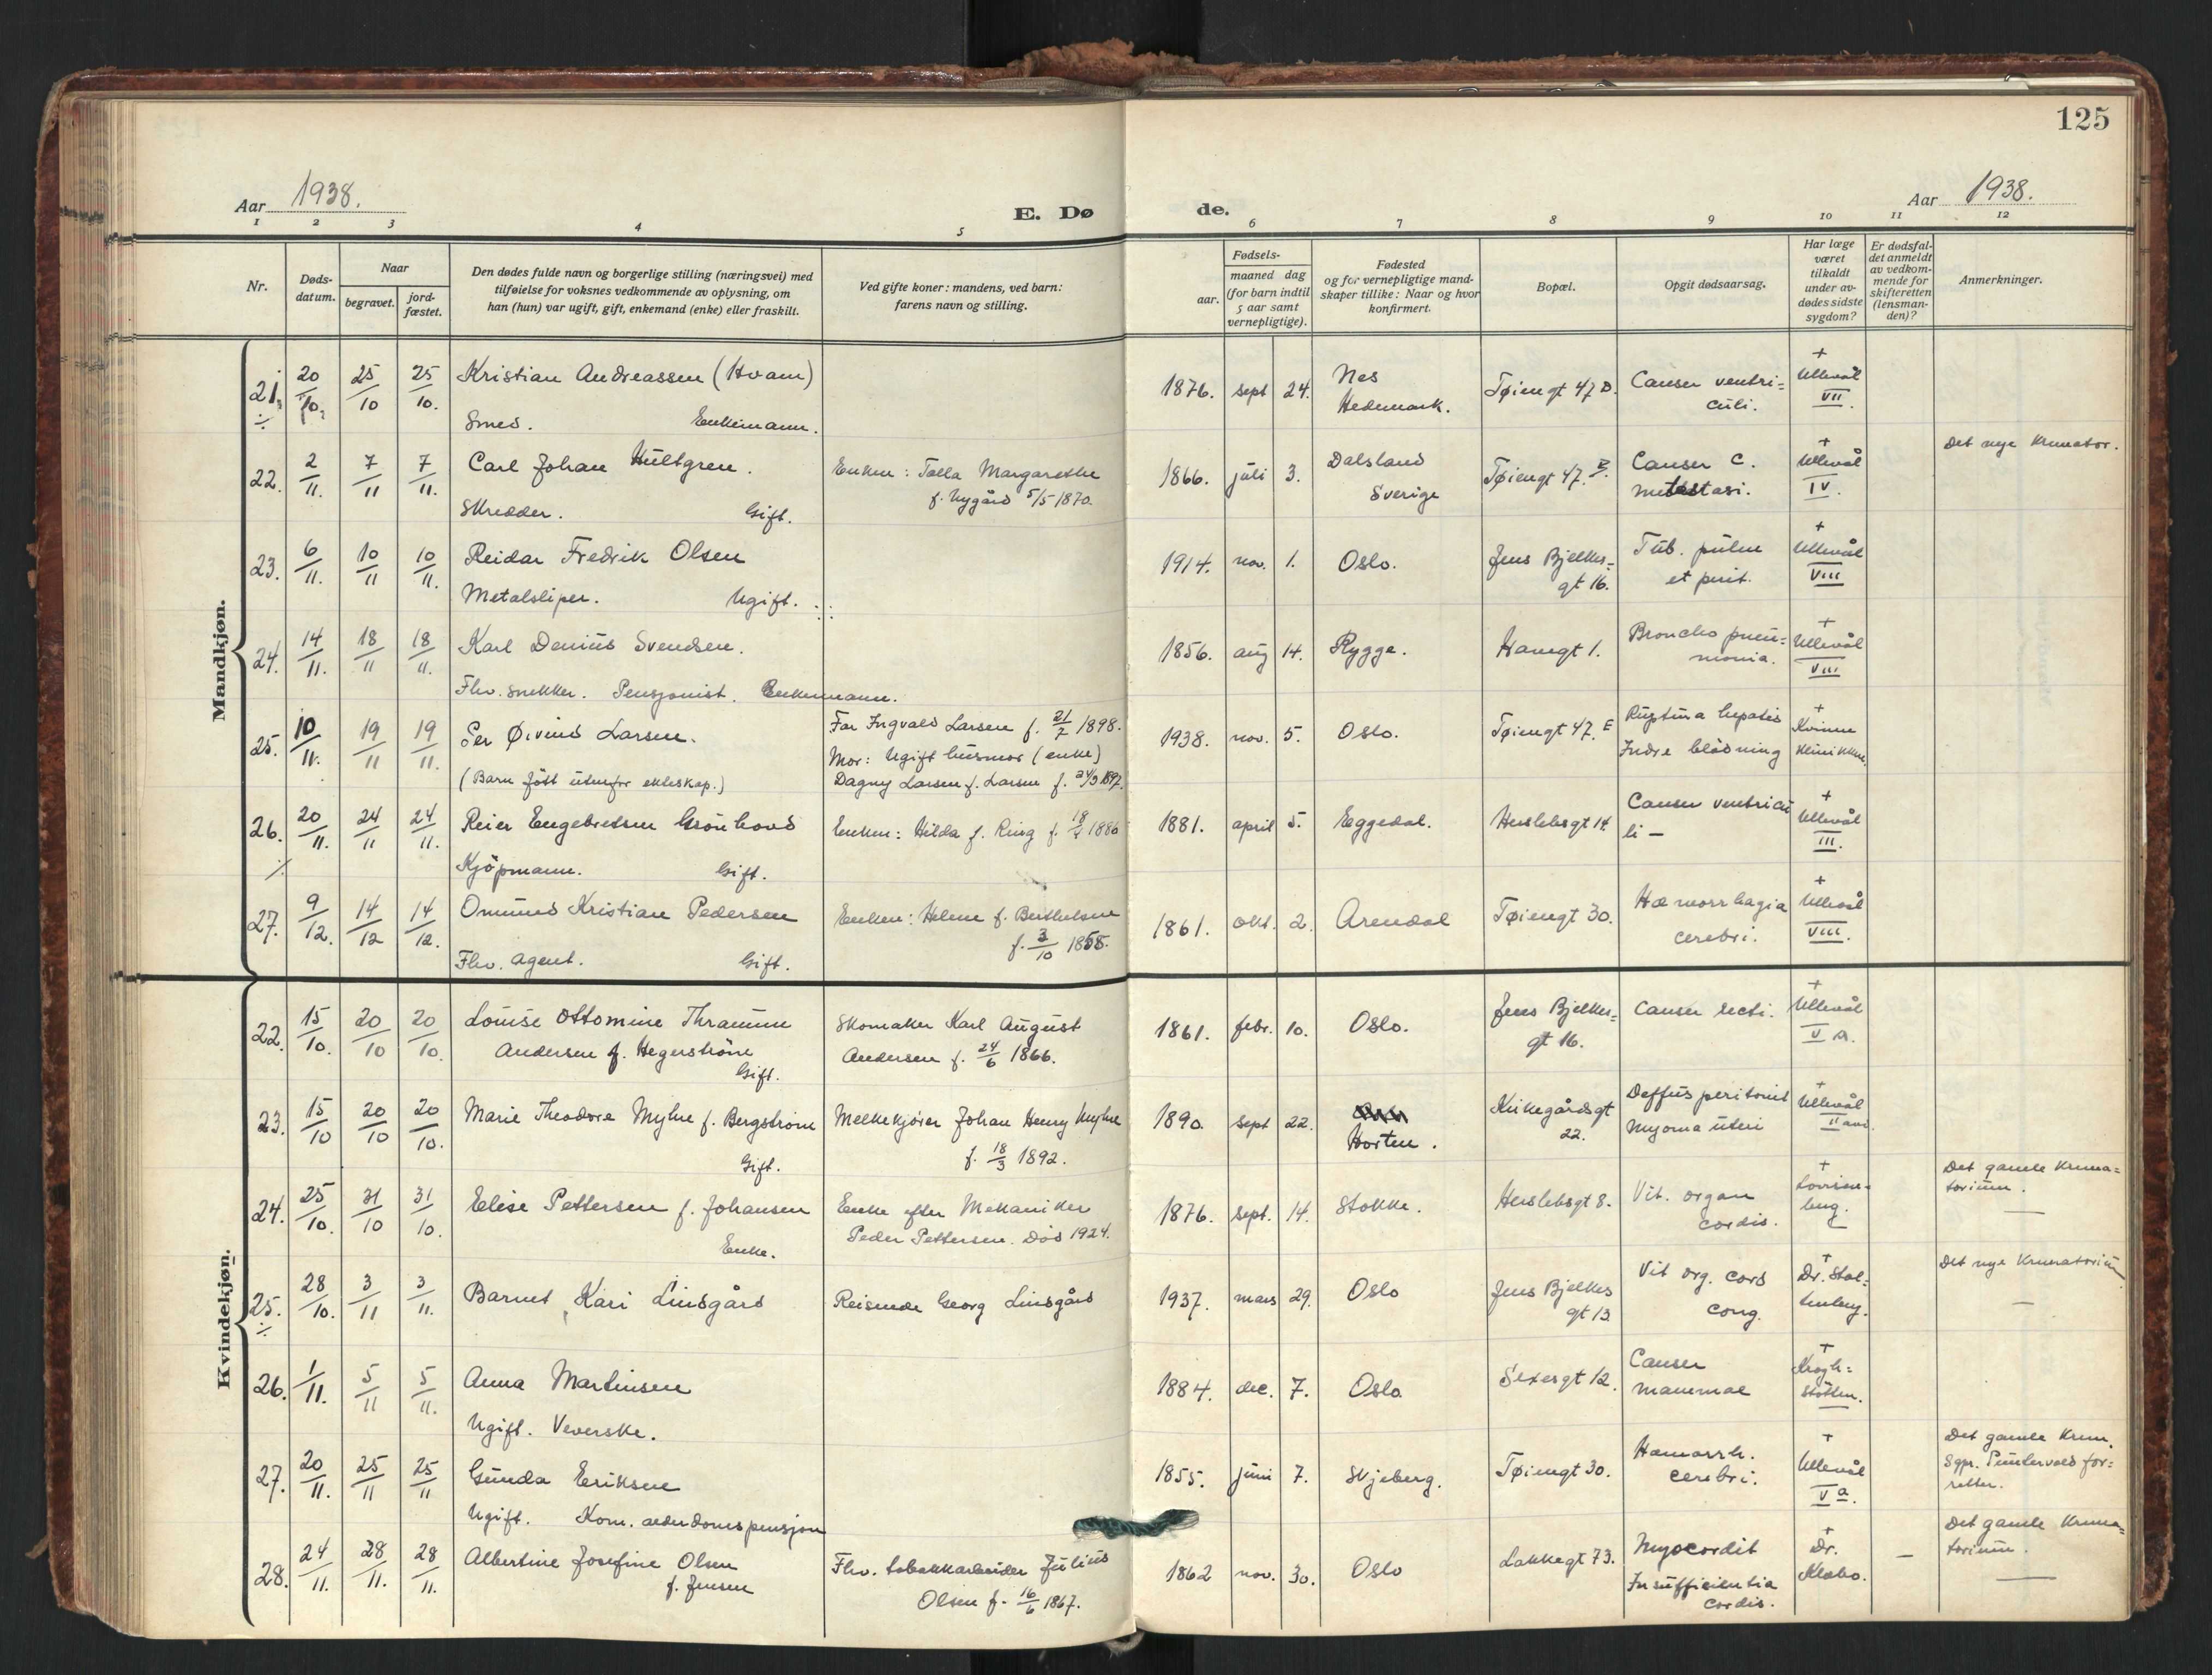 125
Aar 1938.
E. Dø de.
Aar 1938.
1 2 3 4 5 6 7 8 9 10 11 12
Nr.
Døds-
datum.
Naar
begravet.
jord-
fæstet.
Den dødes fulde navn og borgerlige stilling (næringsvei) med
tilføielse for voksnes vedkommende av oplysning, om
han (hun) var ugift, gift, enkemand (enke) eller fraskilt.
Ved gifte koner: mandens, ved barn:
farens navn og stilling.
Fødsels-
aar.
maaned dag
(for barn indtil
5 aar samt
vernepligtige).
Fødested
og for vernepligtige mand-
skaper tillike: Naar og hvor
konfirmert.
Bopæl.
Opgit dødsaarsag.
Har læge
været
tilkaldt
under av-
dødes sidste
sygdom?
Er dødsfal-
det anmeldt
av vedkom-
mende for
skifteretten
(lensman-
den)?
Anmerkninger.
Mandkjøn.
21. 20/10. 25/10 25/10. Kristian Andreassen (Hvam)
Smed. Enkemann.
1876. sept 24. Nes
Hedemark.
Tøiengt 47 D.
Canser ventri=
culi.
+
Ullevål
VII.
22. 2/11. 7/11 7/11. Carl Johan Hultgren.
Skredder. Gift.
Enken: Tolla Margarethe
f. Nygård 5/5 1870.
1866. juli 3. Dalsland
Sverige
Tøiengt 47.
Canser c.
metastasi.
+
Ullevål
IV.
Det nye Kremator.
23. 6/11. 10/11 10/11. Reidar Fredrik Olsen
Metalsliper. Ugift.
1914. nov. 1. Oslo.
Jens Bjelkes=
gt 16.
Tub. pulm
et perit.
+
Ullevål
VIII
24. 14/11. 18/11 18/11. Karl Denius Svendsen.
Fhv. snekker. Pensjonist. Enkemann.
1856. aug 14. Rygge.
Hamgt 1.
Broncho pneu=
monia.
+
Ullevål
VIII
25. 10/11. 19/11 19/11. Per Øivind Larsen.
(Barn født utenfor ekteskap.)
Far Ingvald Larsen f. 21/7 1898.
Mor: Ugift husmor (enke)
Dagny Larsen f. Larsen f. 24/3 1897.
1938. nov. 5. Oslo.
Tøiengt 47. E
Ruptura hepatis
Indre blödning
+
Kvinne
klinikken.
26. 20/11. 24/11 24/11. Reier Engebretsen Grönhovd
Kjöpmann. Gift.
Enken: Hilda f. Ring f. 18/4 1886
1881. april 5. Eggedal.
Herslebsgt 14.
Canser ventricu
li —
+
Ullevål
III.
27. 9/12. 14/12 14/12. Omund Kristian Pedersen
Fhv. agent. Gift.
Enken: Helene f. Berthelsen
f. 3/10 1858.
1861. okt. 2. Arendal
Tøiengt 30.
Hæmorrhagia
cerebri.
+
Ullevål
VIII.
Kvindekjøn.
22. 15/10. 20/10 20/10. Louise Ottomine Thramm
Andersen f. Hegerström
Gift.
Skomaker Karl August
Andersen f. 24/6 1866.
1861. febr. 10. Oslo.
Jens Bjelkes=
gt 16.
Canser recti.
+
Ullevål
V a.
23. 15/10 20/10 20/10. Marie Theodore Myhre f. Bergström
Gift.
Melkekjører Johan Henry Myhre
f. 18/3 1892.
1890. sept 22.
Horten.
Kirkegårdsgt
22.
Deffus peritonit
Myoma uteri
+
Ullevål
II avd.
24. 25/10. 31/10 31/10. Elise Pettersen f. Johansen
Enke.
Enke efter Mekaniker
Peder Pettersen. Död 1924.
1876. sept. 14. Stokke.
Herslebsgt 8.
Vit. organ
cordis.
+
Lovisen=
berg.
Det gamle Krema=
torium.
25. 28/10. 3/11 3/11. Barnet Kari Lindsgård
Reisende Georg Lindsgård
1937. mars 29. Oslo
Jens Bjelkes
gt 13
Vit org. cord
cong.
+
Dr. Stol=
tenberg.
Det nye Krematorium
26. 1/11. 5/11 5/11. Anna Martinsen
Ugift. Veverske.
1884. dec. 7. Oslo
Sexesgt 12.
Canser
mammae
+
Krogh=
stötten.
27. 20/11. 25/11 25/11 Gunda Eriksen
Ugift. Kom. alderdomspensjon
1855. juni 7. Skjeberg.
Tøiengt 30.
Hæmorrh.
cerebri.
+
Ullevål
V a.
Det gamle Krem.
Sgpr. Puntervold for=
retter.
28. 24/11. 28/11. 28/11. Albertine Josefine Olsen
f. Jensen
Fhv. tobakkarbeider Julius
Olsen f. 16/6 1867.
1862 nov. 30. Oslo
Lakkegt 73.
Myocordit
Insufficientia
cordis.
+
Dr.
Klæbo.
—
Det gamle Krema=
torium.